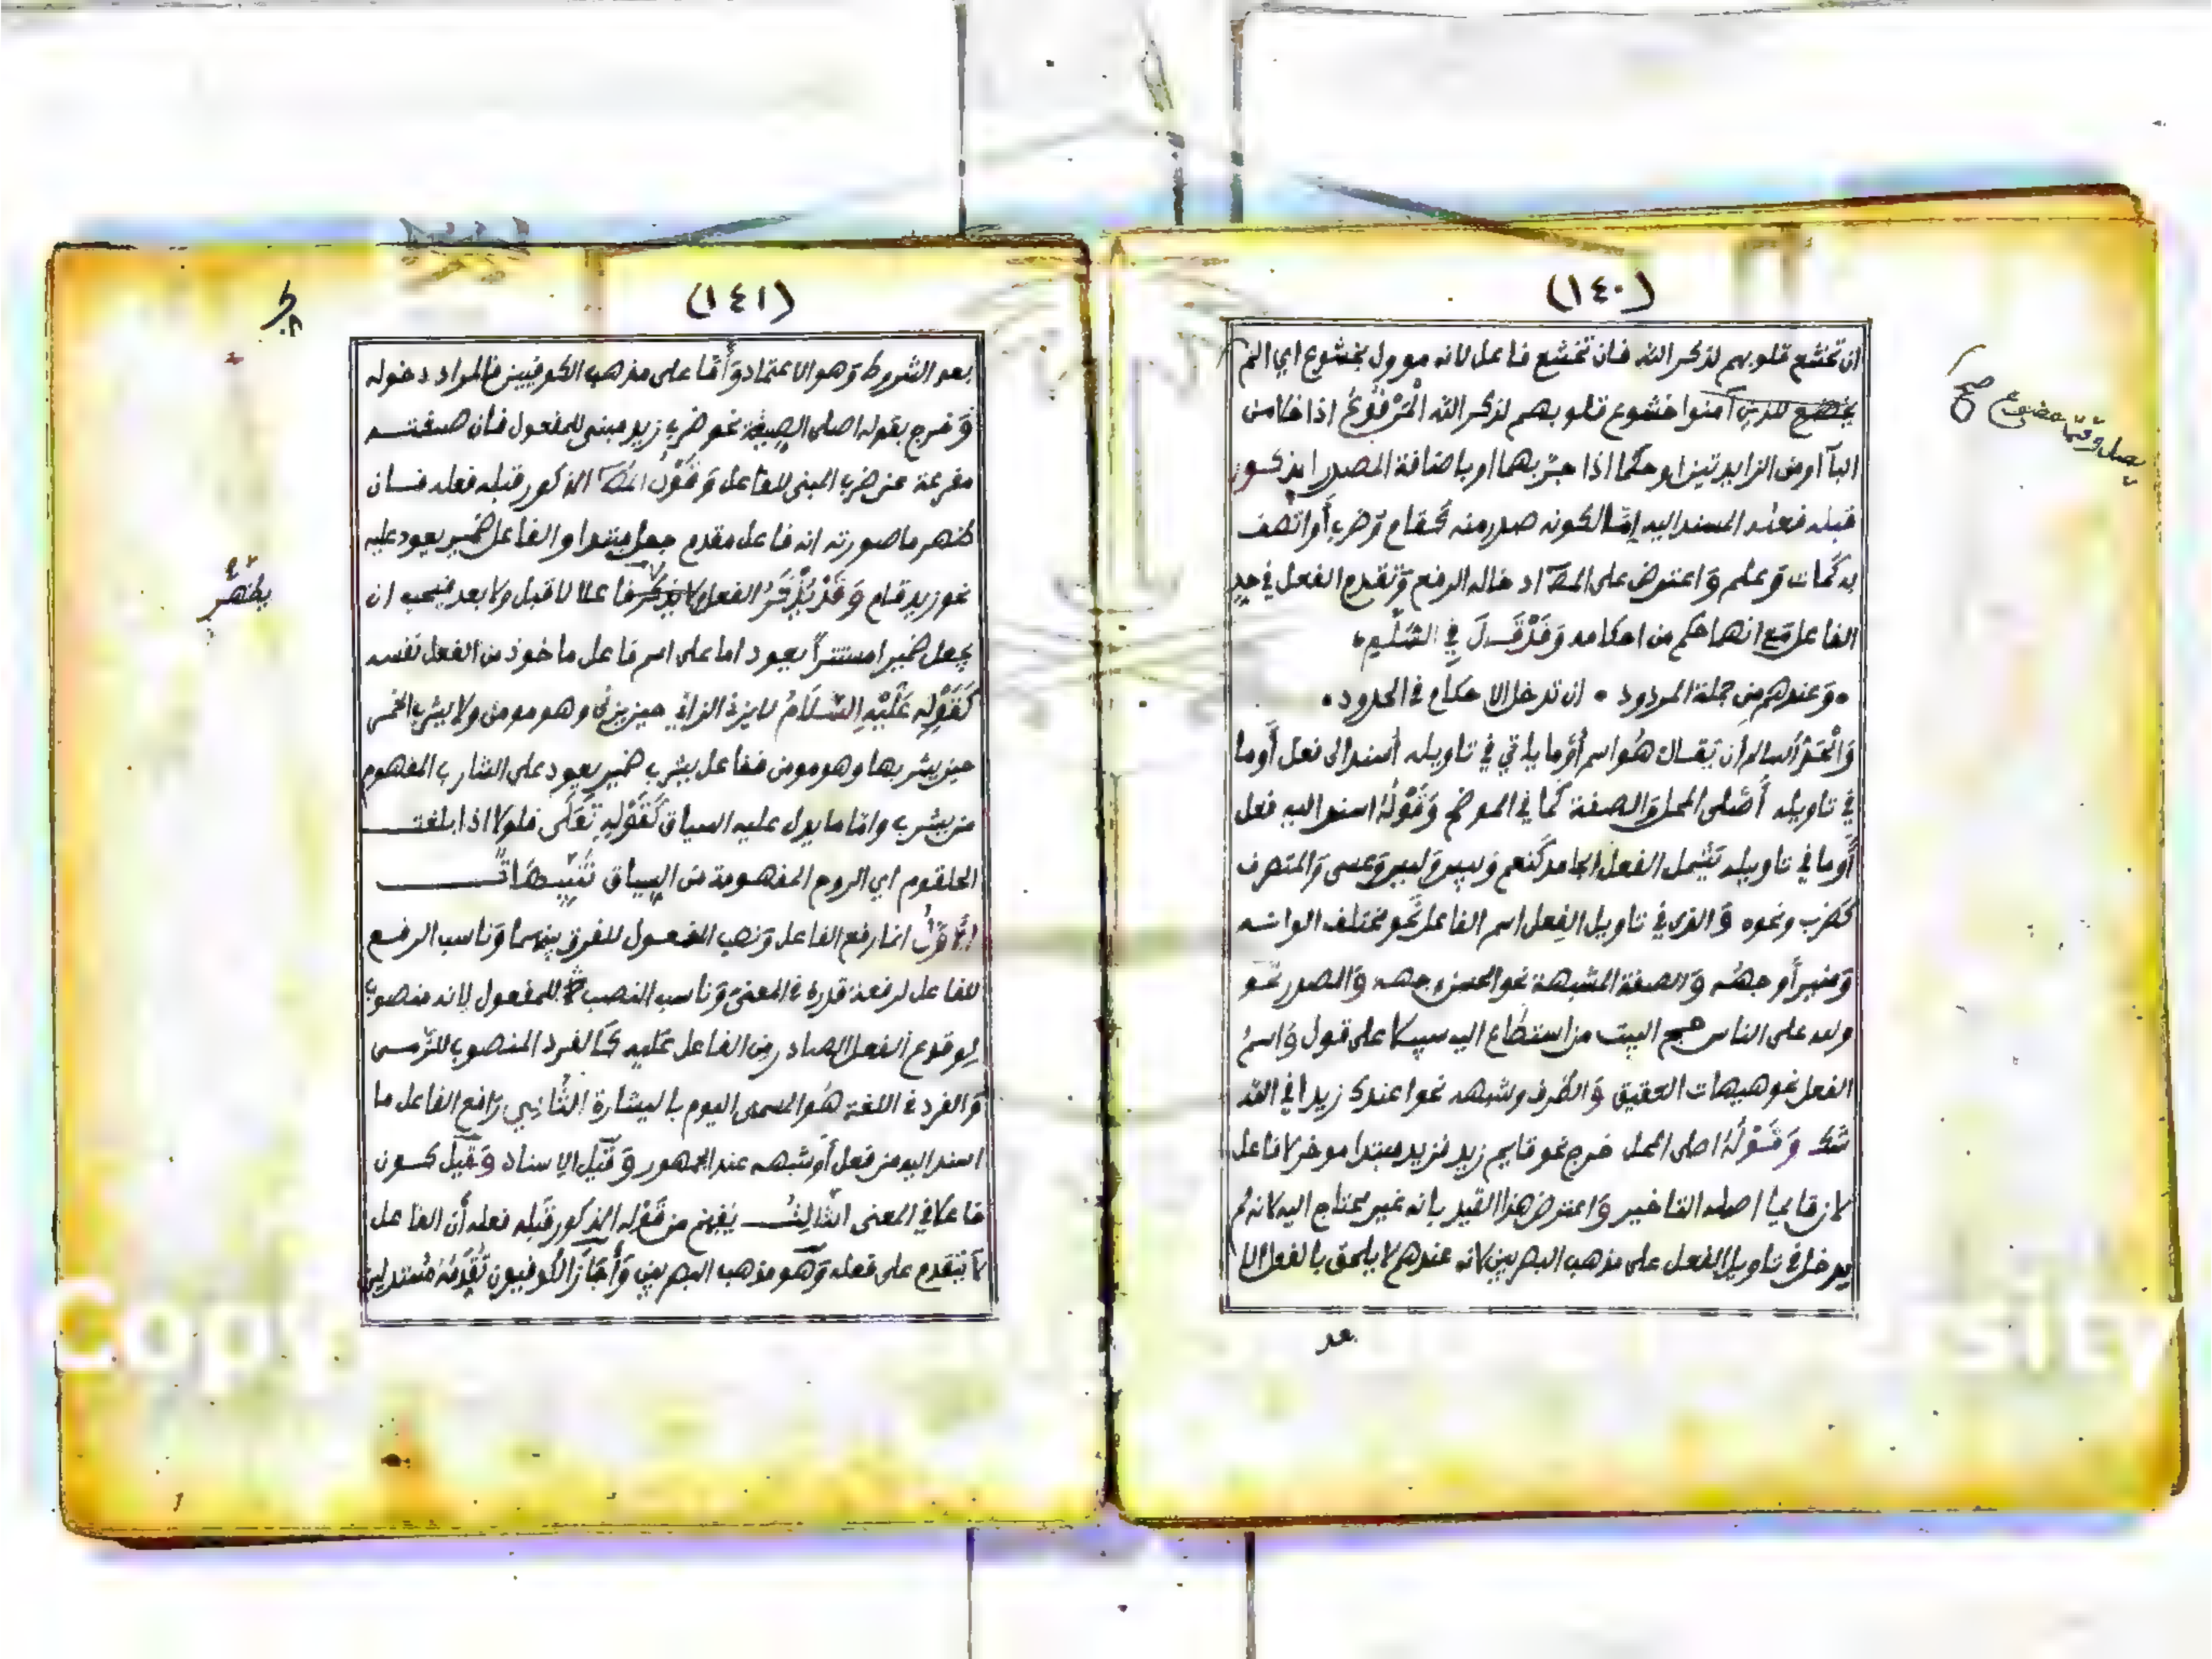 (١٤٠)
ان تخشع قلوبهم لذكر الله فان تخشع فاعل لانه موول بخشوع اي الم
يخضع للذين آمنوا خشوع قلوبهم لذكر الله المرفوع اذا خلا من
البآ او من الزايدتين او حكما اذا جر بهما او باضافة المصدر المذكور
قبله فعله المسند اليه إمّا لكونه صدر منه كقام وضرب أو اتصف
به كمات وعلم واعترض على المصَ ادخاله الرفع وتقديم الفعل في حد
الفاعل مع انهما حكم من احكامه وَقَدْ قَالَ في السُّلَّم
وعندهم من جملة المردود • ان تدخل الاحكام في الحدود •
وَالْحَدُّ السالم ان يقال هُو اسم أو ما ياتي في تاويله أسند الى فعل أو ما
في تاويله أصلي المحل والصفة كما في الموضح وَقَوْلُهُ اسند اليه فعل
أو ما في تاويله يشمل الفعل الجامد كنعم وبيس وليس وعسى والمتصرف
كضرب ونحوه والذي في تاويل الفعل اسم الفاعل نحو مختلف الوانه
ومنير أوجهُه والصفة المشبهة نحو الحسن وجهه والمصدر نحو
ولله على الناس حج البيت من استطاع اليه سبيلا على قول واسمُ
الفعل نحو هيهات العقيق والظرف وشبهه نحو اعندك زيد افي الله
شك وَقَوْلُهُ اصلى المحل خرج نحو قايم زيد فزيد مبتدا موخر لا فاعل
لان قايما اصله التاخير واعترض هذا القيد بانه غير محتاج اليه لانه لم
يدخل في تاويل الفعل على مذهب البصريين لانه عندهم لا يلحق بالفعل الا
بعد
صح
(١٤١)
بعد الشروط وهو الاعتماد وَأمّا على مذهب الكوفيين فالمراد دخوله
وَخرج بقوله اصلى الصيغة نحو ضرب زيد مبني للمفعول فان صيغته
مفرعة عن ضرب المبنى للفاعل وَقَوْلُ المصَ المذكور قبله فعله فان
ظهر ما صورته انه فاعل مقدم جعل مبتدا والفاعل ضمير يعود عليه
نحو زيد قام وَقَدْ يُذْكَرُ الفعل لا يذكر فاعلا لا قبل ولا بعد فيجب ان
يجعل ضميرا مستترا يعود اما على اسم فاعل ماخوذ من الفعل نفسه
كَقَوْلِهِ عَلَيْهِ السَّلَامُ لا يزني الزاني حين يزنى وهو مومن ولا يشرب الخمر
حين يشربها وهو مومن ففاعل يشرب ضمير يعود على الشارب المفهوم
من يشرب واما ما يدل عليه السياق كَقَوْلِهِ تَعَالَى فلولا اذا بلغت
الحلقوم اي الروح المفهومة من السياق تَنْبِيهَاتٌ
الأَوَّلُ انما رفع الفاعل ونصب المفعول للفرق بينهما وناسب الرفع
للفاعل لرفعة قدره في المعنى وناسب النصب للمفعول لانه منصوب
لوقوع الفعل الصادر من الفاعل عليه كالفرد المنصوب للترمى
والفرد في اللغة هُو المسمى اليوم باليشارة الثَّانِي رافع الفاعل ما
اسند اليه من فعل أو شبهه عند الجمهور وَقِيلَ الاسناد وَقِيلَ كون
فاعلا في المعنى الثَّالِثُ يفهم من قَوْلِه المذكور قبله فعله أن الفاعل
لا يتقدم على فعله وهو مذهب البصريين وَأَجَازَ الكوفيون تَقَدُّمَهُ مستدلين
يظهر